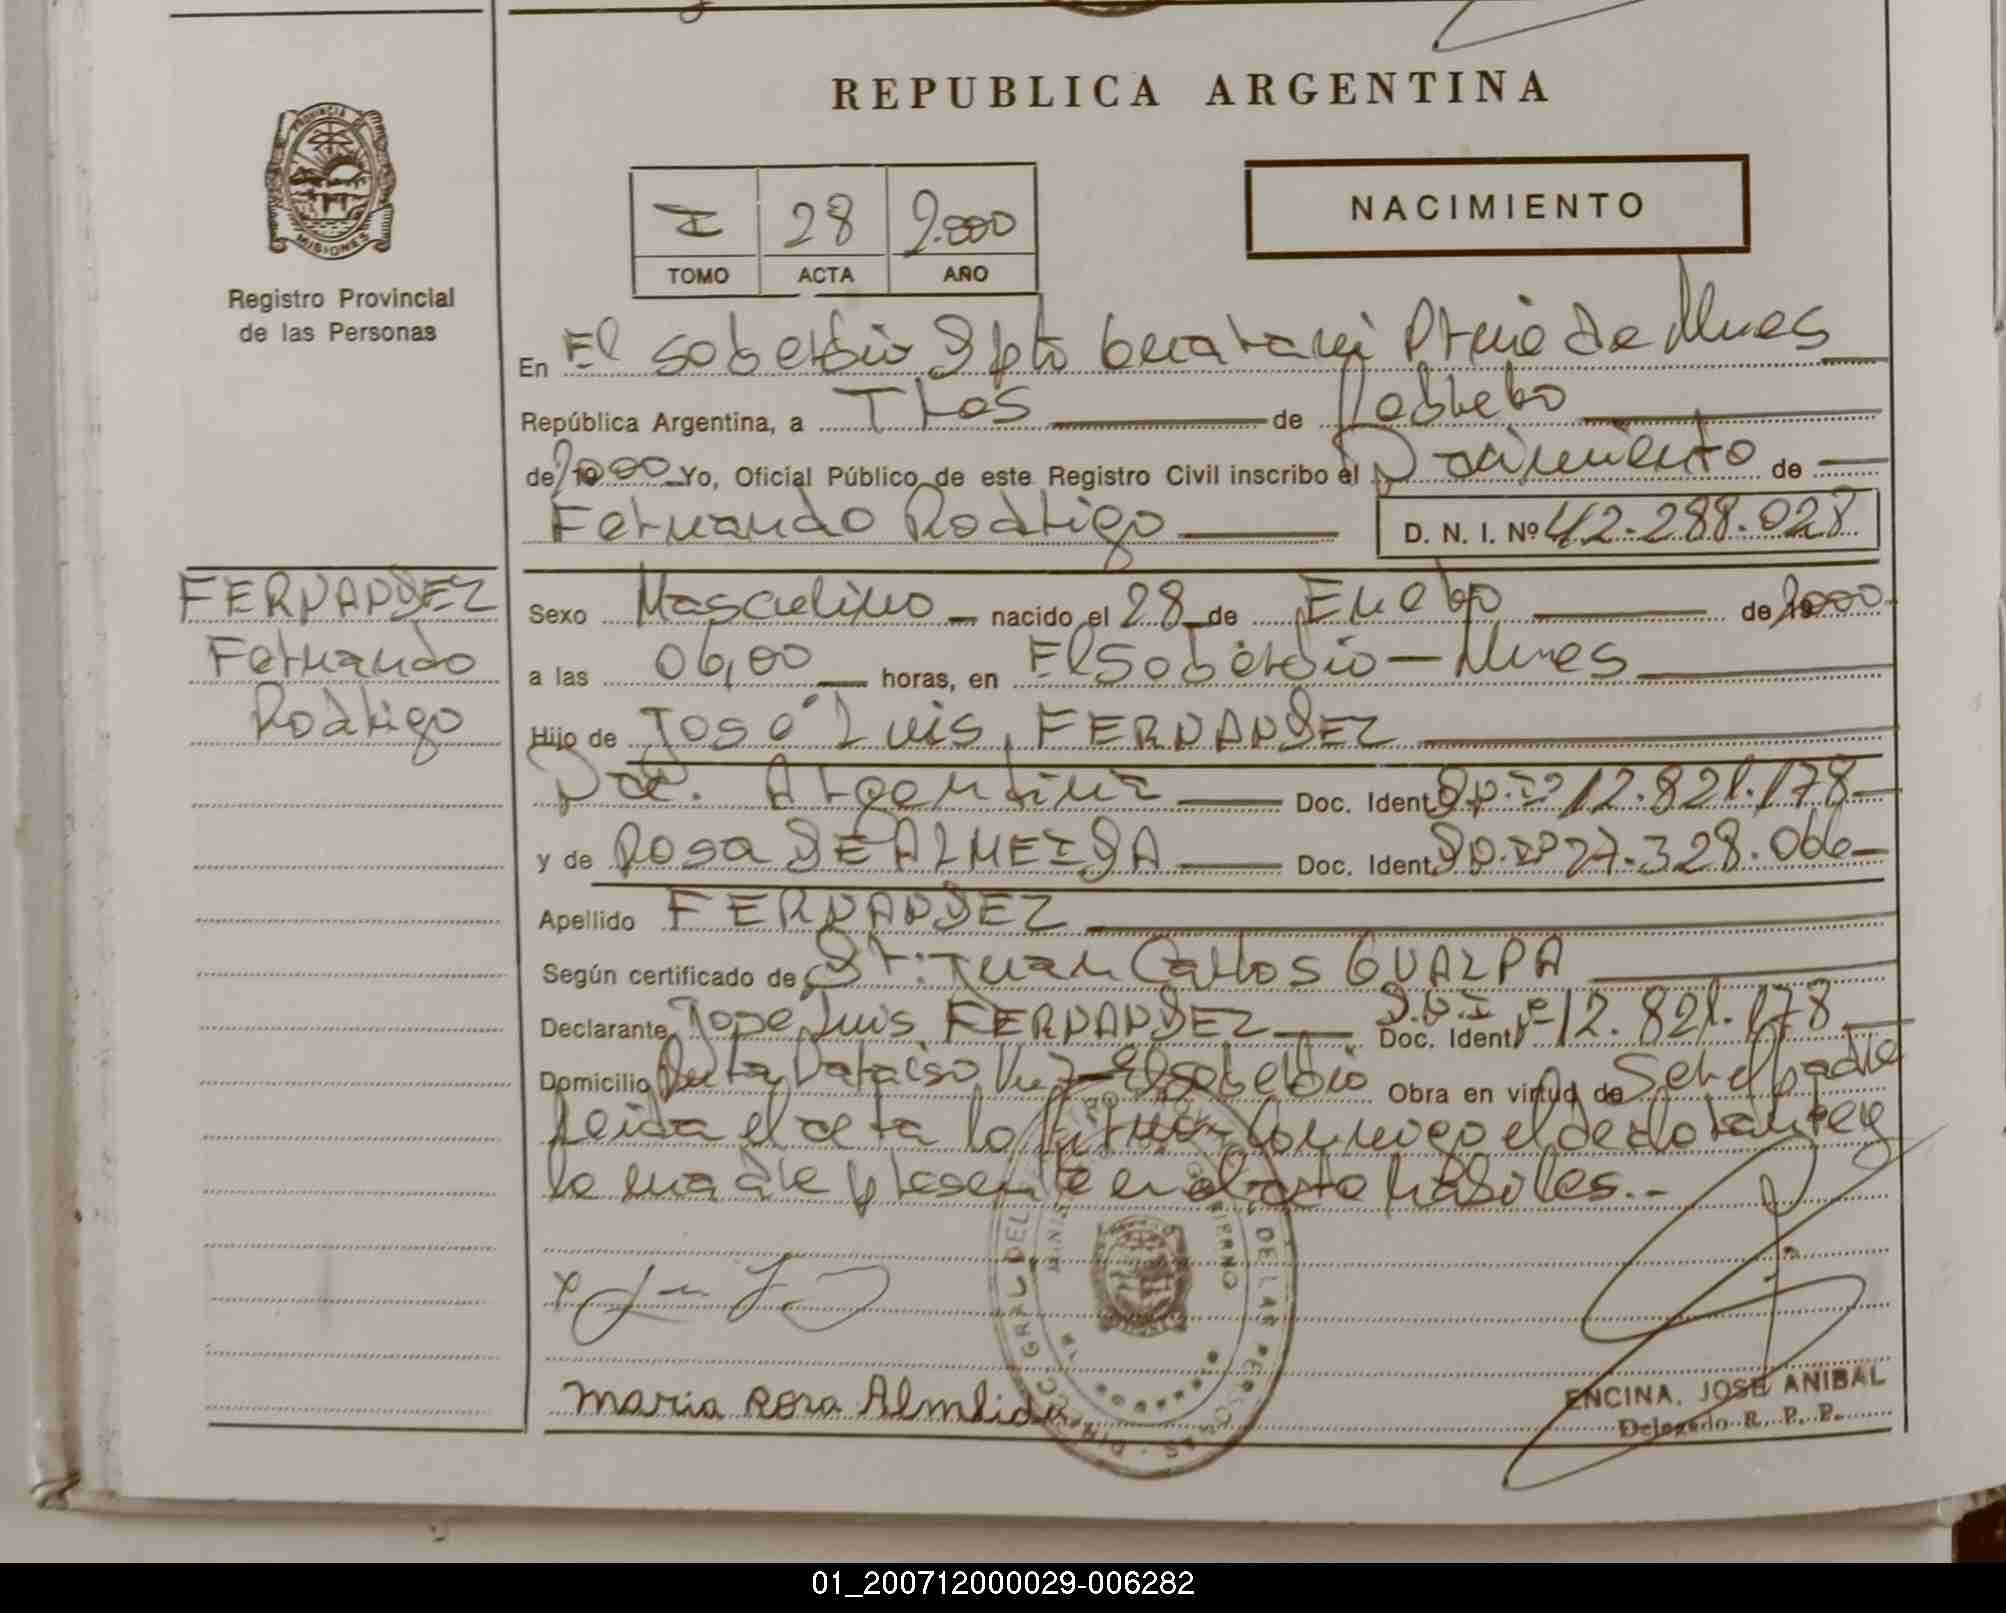 REPUBLICA ARGENTINA
PROVINCIA DE
MISIONES
Registro Provincial
de las Personas
I 28 2.000
TOMO ACTA AÑO
NACIMIENTO
En El Soberbio Dpto Guarani Pcia de Mnes
República Argentina, a Tres de Febrero
de 2000 Yo, Oficial Público de este Registro Civil inscribo el Nacimiento de
Fernando Rodrigo D. N. I. Nº 42.288.028
FERNANDEZ
Fernando
Rodrigo
Sexo Masculino nacido el 28 de Enero de 2000
a las 06,00 horas, en El Soberbio - Mnes
Hijo de José Luis FERNANDEZ
Nac. Argentina Doc. Ident D.N.I Nº 12.821.178
y de Rosa DE ALMEIDA Doc. Ident D.N.I Nº 27.328.066
Apellido FERNANDEZ
Según certificado de Dr: Juan Carlos GUALPA
Declarante José Luis FERNANDEZ Doc. Ident D.N.I Nº 12.821.178
Domicilio Ruta El Soberbio Obra en virtud de Ser el padre
Leida el acta la firman conmigo el declarante y
la madre presente en el acto
Maria Rosa Almeida
ENCINA, JOSE ANIBAL
Delegado R. P. P.
01_200712000029-006282